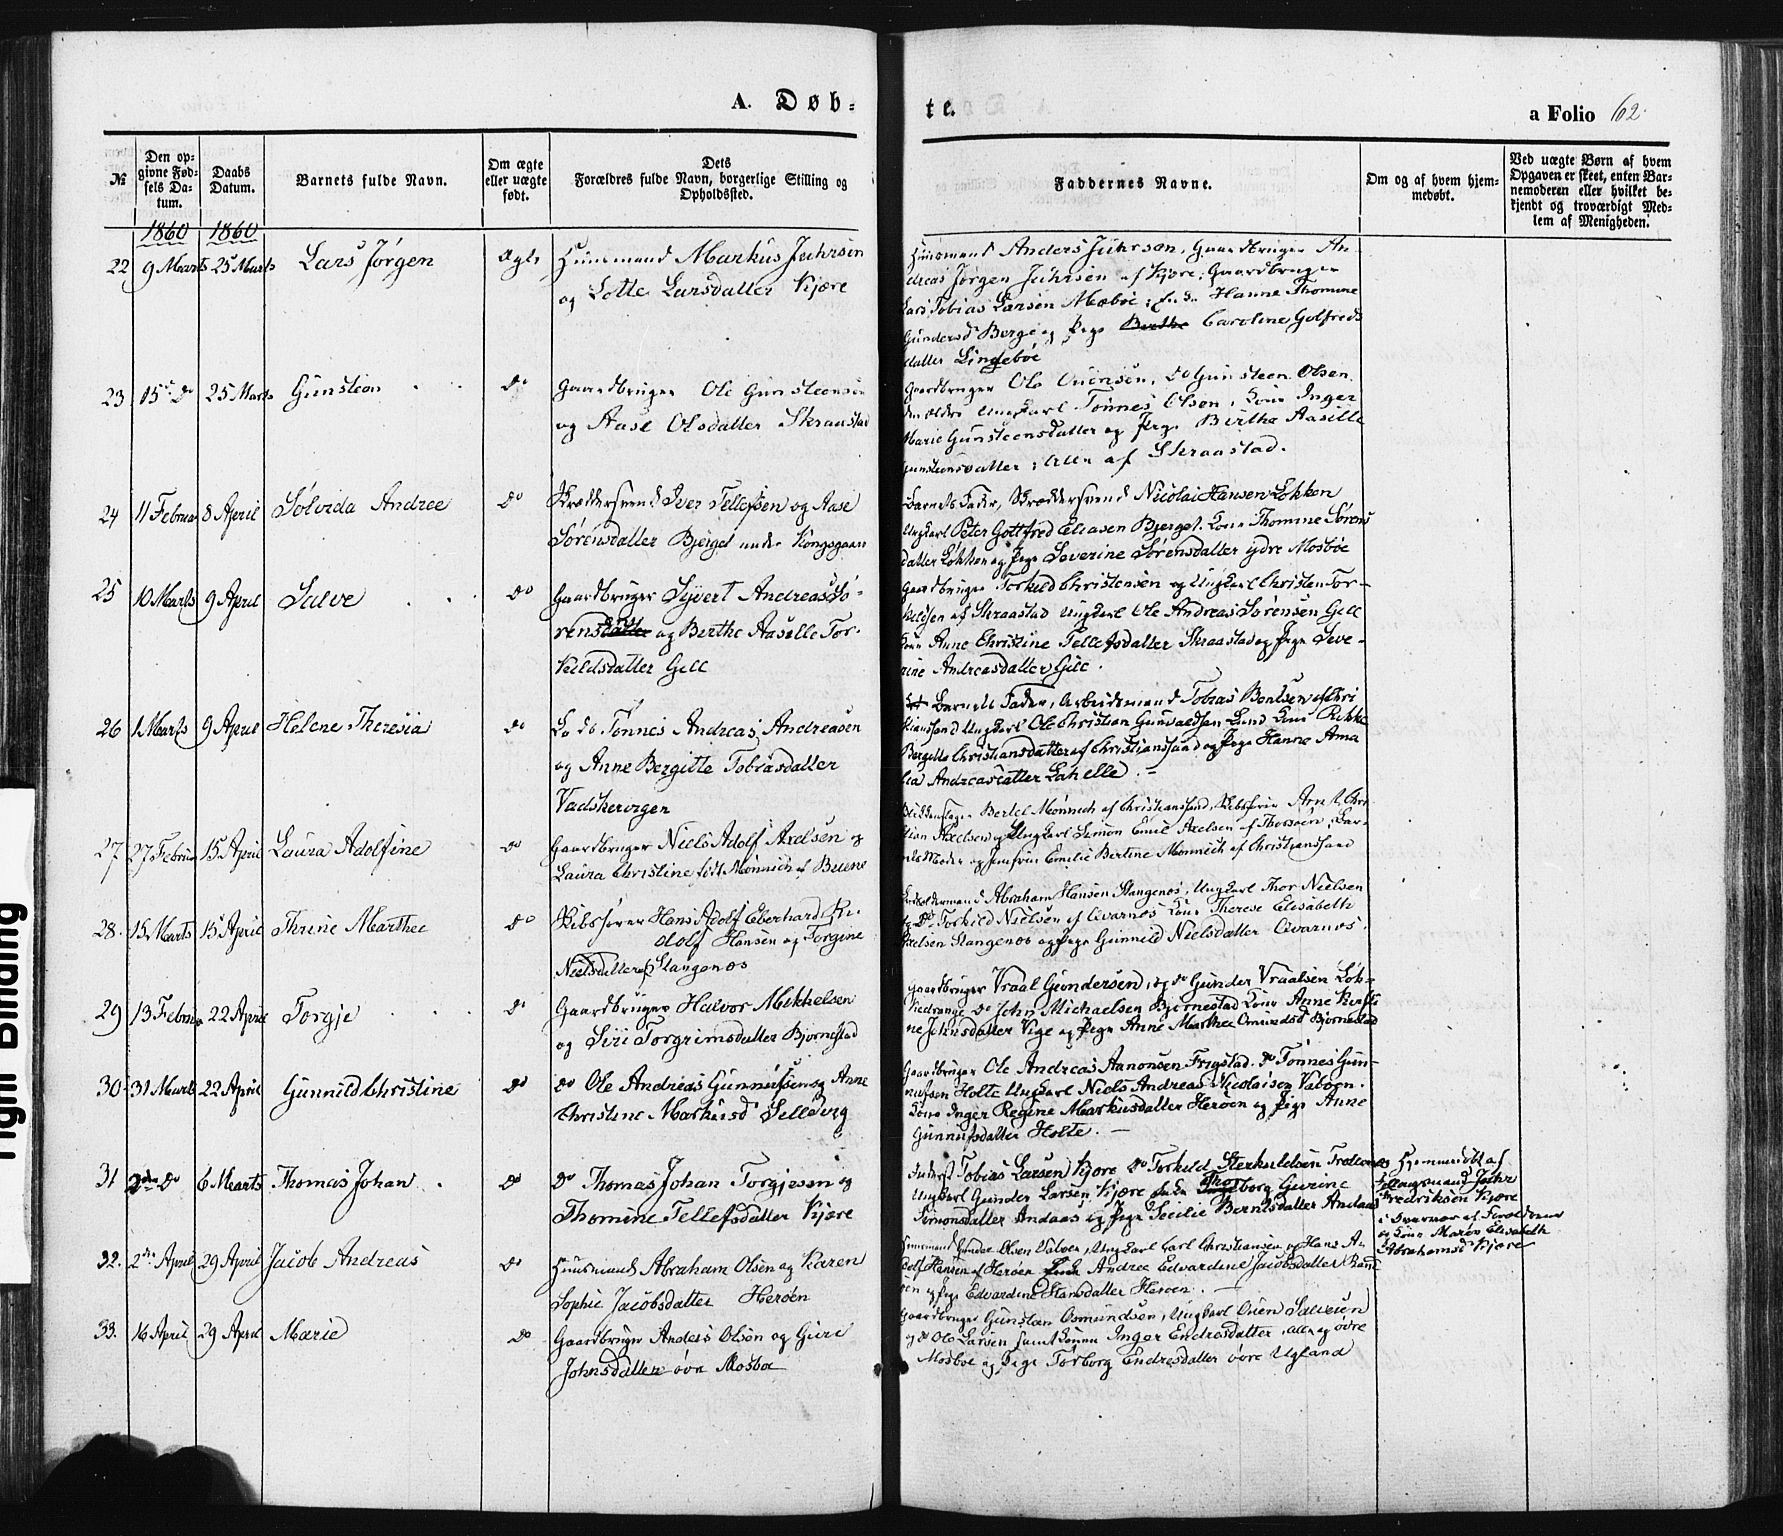 A. Døb-
te.
a Folio 62.
№
Den op-
givne Fød-
sels Da-
tum.
Daabs
Datum.
Barnets fulde Navn.
Om ægte
eller uægte
født.
Dets
Forældres fulde Navn, borgerlige Stilling og
Opholdssted.
Faddernes Navne.
Om og af hvem hjem-
medøbt.
Ved uægte Børn af hvem
Opgaven er skeet, enten Bar-
nemoderen eller hvilket be-
kjendt og troværdigt Med-
lem af Menigheden.
1860 1860
22 9 Marts 25 Marts Lars Jørgen Ægte Huusmand Markus Juhrsen
og Lotte Larsdatter Kjære
Huusmand Anders Juhrsen, Gaardbruger An-
dreas Jørgen Juhrsen af Kjære; Gaardbruger
Lars Tobias Larsen Mæbøe; Hanne Thomine
Gundersd Berge og Pige Berthe Caroline Gotfreds
datter Lindebøe
23 15de Do 25 Marts Gunsteen Do Gaardbruger Ole Gunsteensen
og Aase Olsdatter Skraastad
Gaardbruger Ole Ouensen, Do Gunsteen Olsen
den ældre Ungkarl Tønnes Olsen, Kone Inger
Marie Gunsteensdatter og Pige Birthe Aasille
Gunsteensdatter; Alle af Skraastad.
24 11 Februar 8 April Sølvida Andree Do Skræddersvend Iver Tellefsen og Aase
Sørensdatter Bjerget under Kongsgaard
Barnets Fader, Skræddersvend Nicolai Hansen Løkken
Ungkarl Peter Gottfred Eliasen Bjerget. Kone Thomine Sørens
datter Løkken og Pige Severine Sørensdatter ydre Mosbøe
25 10 Marts 9 April Salve Do Gaardbruger Syvert Andreas Sø-
rensdatter og Berthe Aaselle Tor-
kildsdatter Gill
Gaardbruger Torkild Christensen og Ungkarl Christen Tor-
kildsen af Skraastad Ungkarl Ole Andreas Sørensen Gill
Kone Anne Christine Tellefsdatter Skraastad og Pige Seve-
rine Andreasdatter Gill.
26 1 Marts 9 April Helene Theresia Do Tønnes Andreas Andreasen
og Anne Bergitte Tobiasdatter
Vadskervigen
Barnets Fader, Arbeidsmand Tobias Bentsen af Chri
stiansand Ungkarl Ole Christian Gunvaldsen Lund Kone Rikke
Bergitte Christiansdatter af Christianssand og Pige Hanne Ama
lia Andreasdatter Lahelle.
27 27 Februar 15 April Laura Adolfine Do Gaardbruger Niels Adolf Axelsen og
Laura Christine født Mønnich af Buene
Bertel Mønnich af Christianssand, Skibsfører Arnt Chri
stian Axelsen og Ungkarl Simon Emil Axelsen af Thorsøen, Bar-
nets Moder og Jomfrue Emilie Bertine Mønnich af Christianssand
28. 15 Marts 15 April Thrine Marthee Do Skibsfører Hans Adolf Eberhard Ru-
dolf Hansen og Torgine
Nielsdatter af Stangenæs
Abraham Hansen Stangenæs, Ungkarl Thor Nielsen
og Do Torkild Nielsen af Qvarnæs Kone Therese Elisabeth
Axelsen Stangenæs og Pige Gunnild Nielsdatter Qvarnæs.
29 13 Februar 22 April Torgje Do Gaardbruger Halvor Mikkelsen
og Siri Torgrimsdatter Bjørnestad
Gaardbruger Vraal Gundersen, og Do Gunder Vraalsen Løh-
Do John Michaelsen Bjørnestad Kone Anne Kirsti
ne Johnsdatter Vige og Pige Anne Marthea Omundsd Bjørnestad
30 31 Marts 22 April Gunnild Christine Do Do Ole Andreas Gunnufsen og Anne
Christine Markusd Selledvig
Gaardbruger Ole Andreas Aanonsen Frigstad. Do Tønnes Gun-
nufsen Holte Ungkarl Niels Andreas Nicolaisen Valøen.
Kone Inger Regine Markusdatter Herøen og Pige Anne
Gunnufsdatter Holte.
31 2den Do 6 Marts Thomas Johan Do Do Thomas Johan Torgjesen og
Thomine Tellefsdatter Kjære
Tobias Larsen Kjære Do Torkild
Ungkarl Gunder Larsen Kjære Thorborg Gurine
Simonsdatter Andaas og Pige Secilie Berntsdatter Andaas
Hjemmedøbt af
Juhr
Fredriksen Kjære
i Nærvær af Forældrene
og Kone Maren Elisabeth
Abrahamsd Kjære
32. 2den April 29 April Jacob Andreas Do Huusmand Abraham Olsen og Karen
Sophie Jacobsdatter Herøen
Huusmand Gunder Olsen Valøen, Ungkarl Carl Christiansen og Hans A-
dolf Hansen af Herøen Andree Edvardine Jacobsdatter Rand
øen og Pige Edvardine Hansdatter Herøen.
33. 16 April 29 April Marie Do Gaardbruger Anders Olsen og Guri
Johnsdatter øvre Mosbøe
Gaardbruger Gunstan Osmundsen, Ungkarl Ouen Salvesen
og Do Ole Larsen samt Konen Inger Endresdatter, alle af øvre
Mosbøe og Pige Torborg Endresdatter øvre Ugland
Tight Binding